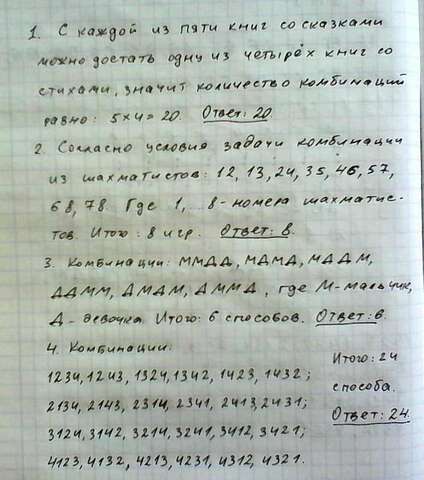 1. С каждой из пяти книг со сказками
можно достать одну из четырёх книг со
стихами, значит количество комбинаций
равно: 5×4=20. Ответ: 20.
2. Согласно условия задачи комбинации
из шахматистов: 12, 13, 24, 35, 46, 57,
68, 78. Где 1, ... 8 - номера шахматис-
тов. Итого: 8 игр. Ответ: 8.
3. Комбинации: ММДД, МДМД, МДДМ,
ДДММ, ДМДМ, ДММД, где М-мальчик,
Д - девочка. Итого: 6 способов. Ответ: 6.
4. Комбинации:
1234, 1243, 1324, 1342, 1423, 1432;
2134, 2143, 2314, 2341, 2413, 2431;
3124, 3142, 3214, 3241, 3412, 3421;
4123, 4132, 4213, 4231, 4312, 4321.
Итого: 24
способа.
Ответ: 24.